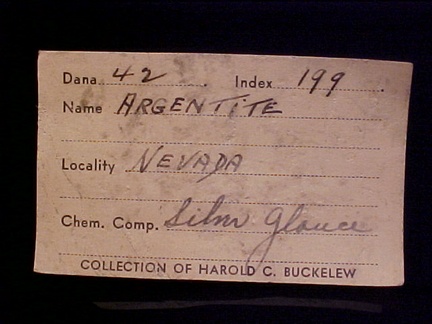 Dana 42 Index 199
Name ARGENTITE
Locality NEVADA
Chem. Comp. Silver Glance
COLLECTION OF HAROLD C. BUCKELEW